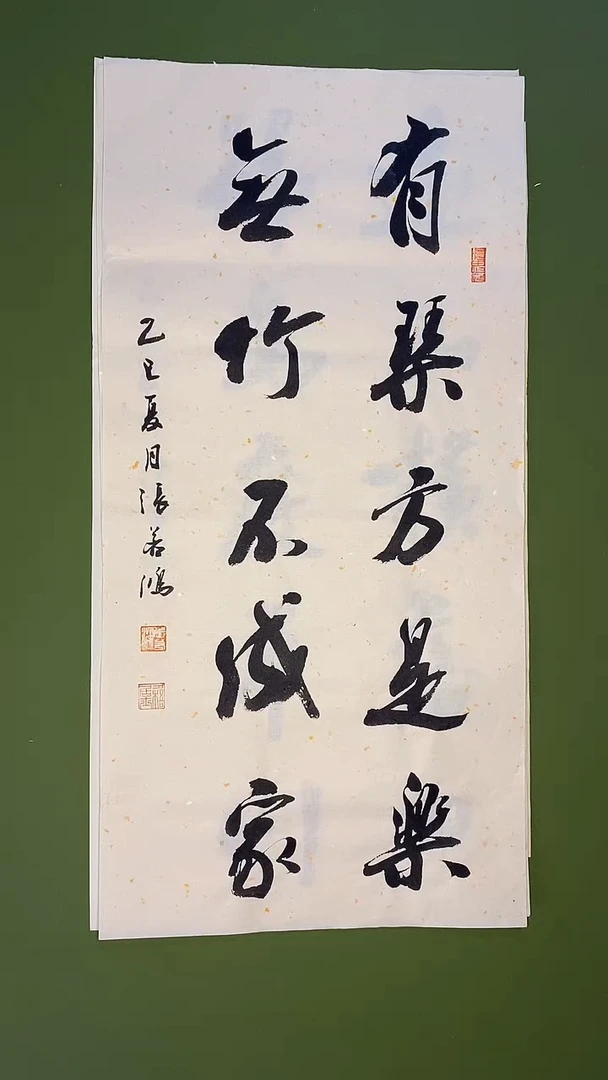 有琴方是樂
無竹不成家
乙巳夏月張若鴻